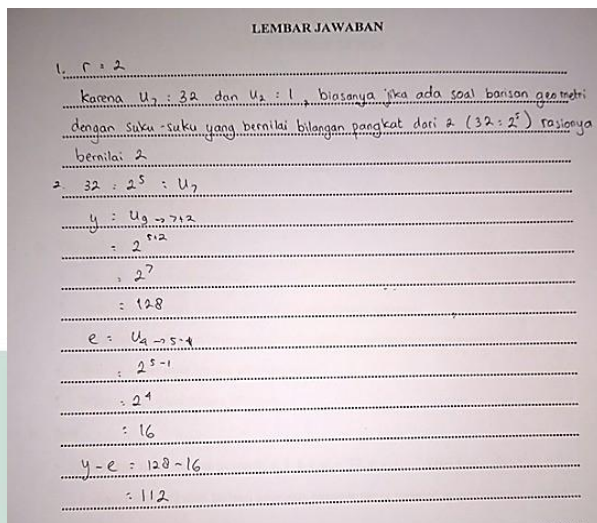 LEMBAR JAWABAN
1. r = 2
Karena U7 = 32 dan U2 = 1, biasanya jika ada soal barisan geometri
dengan suku-suku yang bernilai bilangan pangkat dari 2 (32 = 2^5) rasionya
bernilai 2
2. 32 = 2^5 = U7
y = U9 → 7+2
= 2^5+2
= 2^7
= 128
e = U4 → 5-4
= 2^5-1
= 2^4
= 16
y - e = 128 - 16
= 112